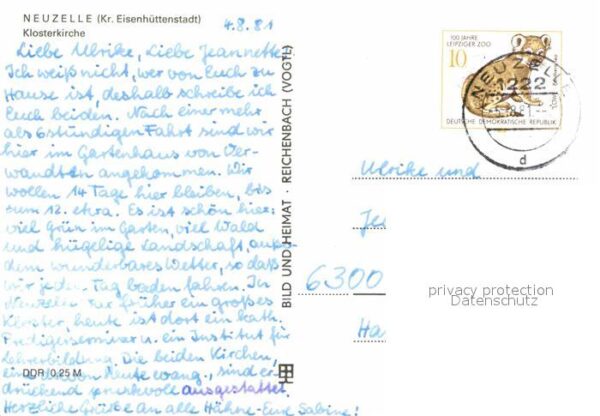 NEUZELLE (Kr. Eisenhüttenstadt)
Klosterkirche
4.8.81
Liebe Ulrike, Liebe Jeannette,
Ich weiß nicht, wer von Euch zu
Hause ist, deshalb schreibe ich
Euch beiden. Nach einer mehr
als 6stündigen Fahrt sind wir
hier im Gartenhaus von Ver-
wandten angekommen. Wir
wollen 14 Tage hier bleiben, bis
zum 12. etwa. Es ist schön hier:
viel Grün im Garten, viel Wald
und hügelige Landschaft, außer
dem wunderbares Wetter, so daß
wir jeden Tag baden fahren. In
Neuzelle war früher ein großes
Kloster, heute ist dort ein kath.
Predigerseminar u. ein Institut für
Lehrerbildung. Die beiden Kirchen,
eine davon heute evang., sind er-
drückend prunkvoll ausgestattet.
Herzliche Grüße an alle Hähne - Eure Sabine!
DDR 0,25 M
BILD UND HEIMAT · REICHENBACH (VOGTL)
100 JAHRE
LEIPZIGER ZOO
10
DEUTSCHE DEMOKRATISCHE REPUBLIK
NEUZELLE
1222
d
Ulrike und
Je
6300
Ha
privacy protection
Datenschutz